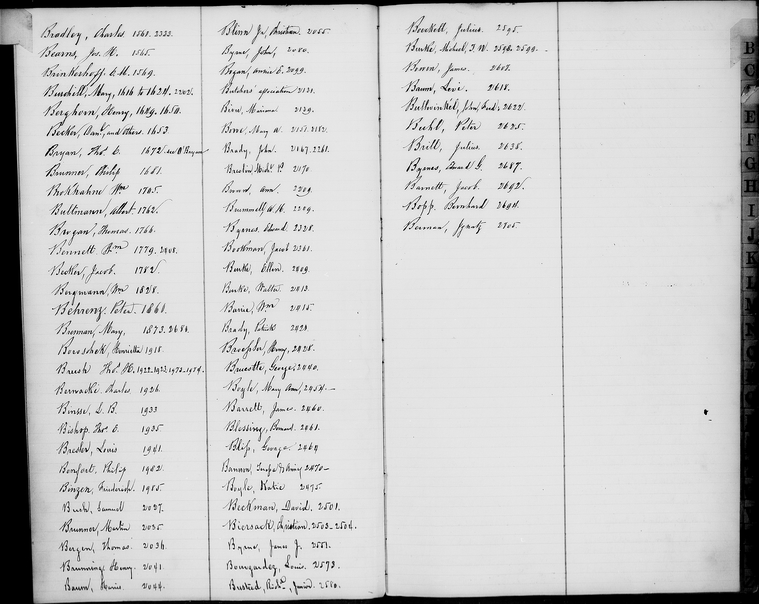 Bradley, Charles 1561. 2222.
Bearns, Jos. H. 1565.
Brinkerhoff, E. M. 1569.
Burchill, Mary, 1616 to 1624. 2202.
Berghorn, Henry, 1649. 1650.
Becker, and others. 1653
Bryan, Thos. C. 1672. see O'Bryan
Brunner, Philip 1681.
Brokhahne Wm 1705.
Bultmann, Albert. 1762.
Brogan, Thomas. 1766.
Bennett, Wm 1779. 2808.
Becker, Jacob. 1782.
Bergmann, Wm 1828.
Behrenz. Peter. 1861.
Mary, 1873. 2680.
Henrietta 1918.
Brush Thos. H. 1922. 1923. 1973. 1974.
Charles 1926.
Binsse, L. B. 1933
Bishop. Thos. C. 1935
Bresler, Louis 1941.
Bonfort. Philip 1942.
Binzen, Frederick. 1985.
Buch, Samuel 2027.
Brunner, Martin 2035
Bergen, Thomas 2036.
Henry. 2041.
Baum, 2044.
Blinn Jr, Christian. 2055.
Byrne, John, 2080.
Annie E. 2099.
Butchers' association 2121.
2129.
Bone, Mary A. 2151. 2182.
Brady, John. 2167. 2261.
2170.
Ann. 2209.
2209.
Byrnes, Edward. 2328.
Bookman, Jacob 2361.
Burke, Ellen. 2409.
Burke, Walter. 2413.
Wm 2415.
Brady, Patrick 2421.
Henry, 2428.
George, 2440.
Boyle, Mary Ann, 2454.
Barrett, James. 2460.
Blessing, Bernard. 2461.
Bliss, George. 2464
Bannon, 2470
Boyle, Katie 2475
Beckman, David. 2501.
Biersack, Christian, 2503-2504.
Byrne, James J. 2551.
Bourgardez, Louis. 2573.
Busteed, Richd., 2580.
Beckett, Julius. 2595.
Burke, Michael, J. W. 2598. 2599.
James. 2608.
Baum, Levi. 2618.
Bullwinkel, John, Fred. 2622.
Buchl, Peter 2625.
Brill, Julius. 2638.
Byrnes, Edward G. 2687.
Barnett, Jacob. 2692.
Bopp. Bernhard 2694.
Berman, Ignatz 2705.
B
C
E
F
G
H
I
J
K
L
M
N